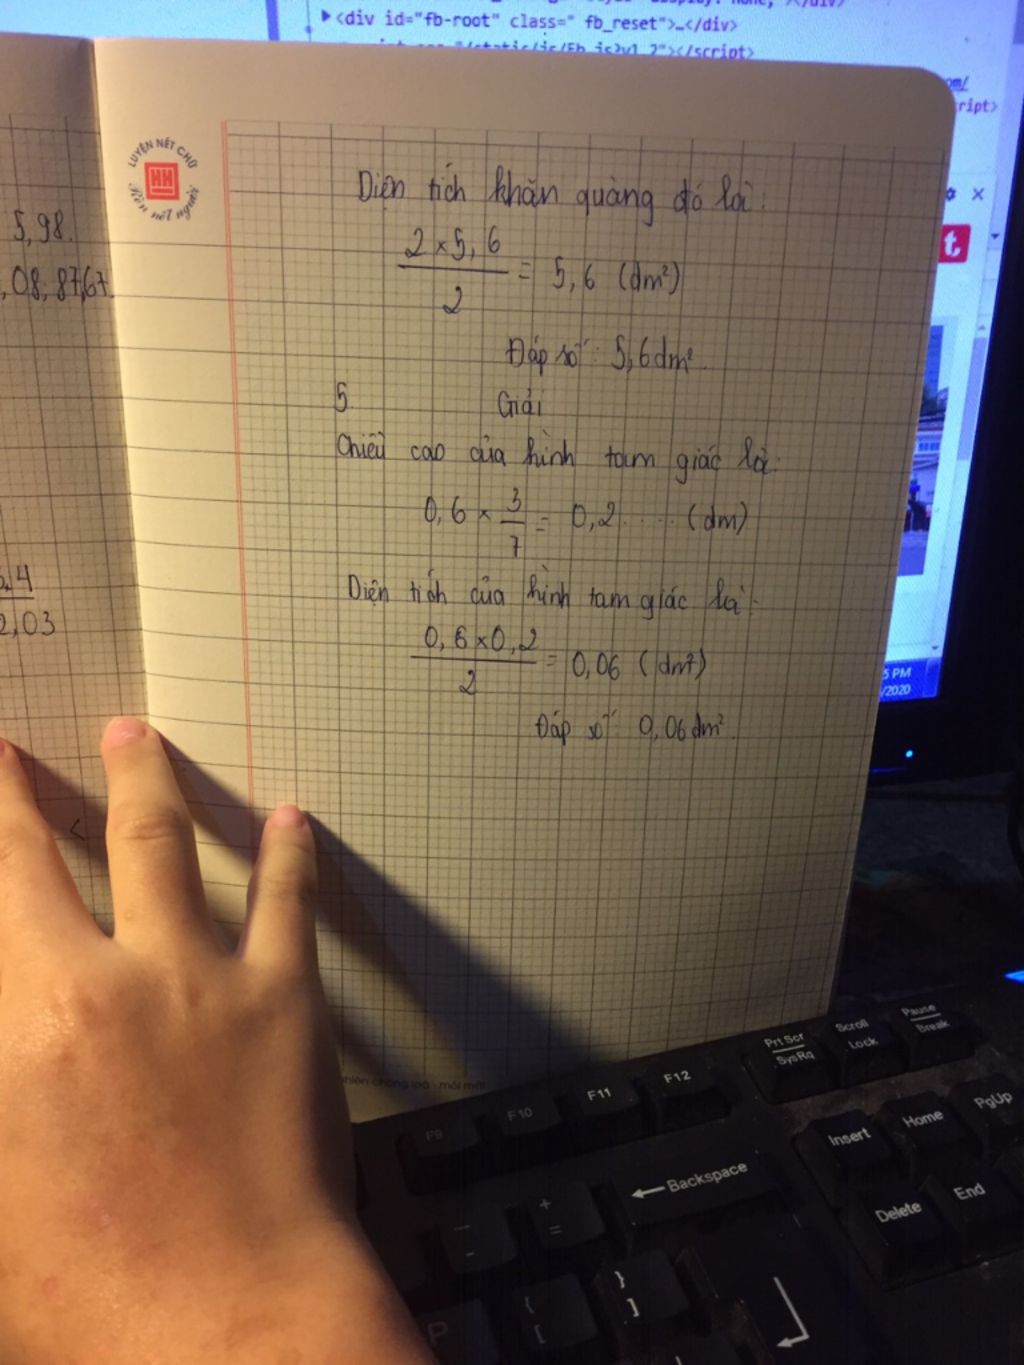 <div id="fb-root" class=" fb_reset">…</div>
></script>
ript>
LUYỆN NÉT CHỮ
HH
Rèn nết người
5,98.
,08; 87,67.
2,03
Diện tích khăn quàng đỏ là:
2 x 5,6
2
= 5,6 (dm²)
Đáp số: 5,6dm².
5.
Giải
Chiều cao của hình tam giác là:
0,6 x 3/7 = 0,2..... (dm)
Diện tích của hình tam giác là:
0,6 x 0,2
2
= 0,06 (dm²)
Đáp số: 0,06dm².
t.
5 PM
/2020
<
Prt Scr
SysRq
Scroll
Lock
Pause
Break
F9
F10
F11
F12
Insert
Home
PgUp
← Backspace
Delete
End
+
=
-
{
[
}
]
P